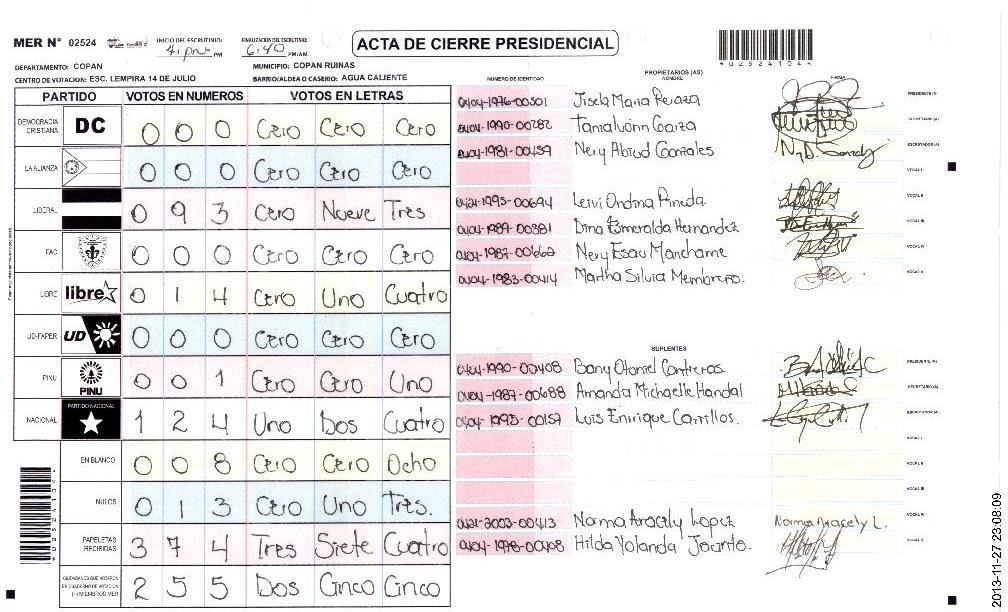 MER N° 02524
INICIO DEL ESCRUTINIO: 4:pm PM
FINALIZACION DEL ESCRUTINIO: 6:40 PM/AM
ACTA DE CIERRE PRESIDENCIAL
4025241044
DEPARTAMENTO: COPAN
MUNICIPIO: COPAN RUINAS
CENTRO DE VOTACION: ESC. LEMPIRA 14 DE JULIO
BARRIO/ALDEA O CASERIO: AGUA CALIENTE
PARTIDO VOTOS EN NUMEROS VOTOS EN LETRAS
DEMOCRACIA CRISTIANA DC 0 0 0 Cero Cero Cero
LA ALIANZA 0 0 0 Cero Cero Cero
LIBERAL 0 9 3 Cero Nueve Tres
FAC 0 0 0 Cero Cero Cero
LIBRE libre 0 1 4 Cero Uno Cuatro
UD-FAPER UD 0 0 0 Cero Cero Cero
PINU PINU 0 0 1 Cero Cero Uno
NACIONAL PARTIDO NACIONAL 1 2 4 Uno Dos Cuatro
EN BLANCO 0 0 8 Cero Cero Ocho
NULOS 0 1 3 Cero Uno Tres.
PAPELETAS RECIBIDAS 3 7 4 Tres Siete Cuatro
CIUDADANOS QUE VOTARON EN CUADERNO DE VOTACION (+) MIEMBROS MER 2 5 5 Dos Cinco Cinco
PROPIETARIOS (AS)
NUMERO DE IDENTIDAD NOMBRE FIRMA
0404-1976-00301 Jisela Maria Peraza PRESIDENTE (A)
0404-1990-00282 SECRETARIO (A)
0404-1981-00459 Nery Abiud Gonzales ESCRUTADOR (A)
VOCAL I
0421-1995-00694 Leivi Ondina Pineda VOCAL II
0404-1989-00381 Dina Esmeralda Hernandez VOCAL III
0404-1987-00662 Nery Esau Manchame VOCAL IV
0404-1983-00414 Martha Silvia Membreño. VOCAL V
SUPLENTES
0404-1990-00408 Bany Otoniel Contreras PRESIDENTE (A)
0404-1987-00688 Amanda Michaelle Handal SECRETARIO (A)
0404-1993-00157 Luis Enrique Carrillos. ESCRUTADOR (A)
VOCAL I
VOCAL II
VOCAL III
0421-2003-00413 Norma Aracely Lopez Norma Aracely L. VOCAL IV
0404-1978-00408 Hilda Yolanda Jacinto. VOCAL V
2013-11-27 23:08:09